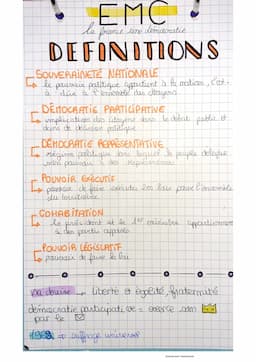 EMC
la france une démocratie
DEFINITIONS
SOUVERAINETÉ NATIONALE
le pouvoir politique appartient à la nation, c'est
à dire à l'ensemble des citoyens
DÉMOCRATIE PARTICIPATIVE
implication des citoyens dans le débat public et
dans la décision politique
DÉMOCRATIE REPRÉSENTATIVE
régime politique dans lequel le peuple délègue
son pouvoir à des représentants
POUVOIR EXÉCUTIF
pouvoir de faire exécuter les lois pour l'ensemble
du territoire
COHABITATION
le président et le 1er ministre appartiennent
à des partis opposés
POUVOIR LÉGISLATIF
pouvoir de faire la loi
la devise → liberté et égalité, fraternité
démocratie participative = exercer son
par le
⇒ suffrage universel